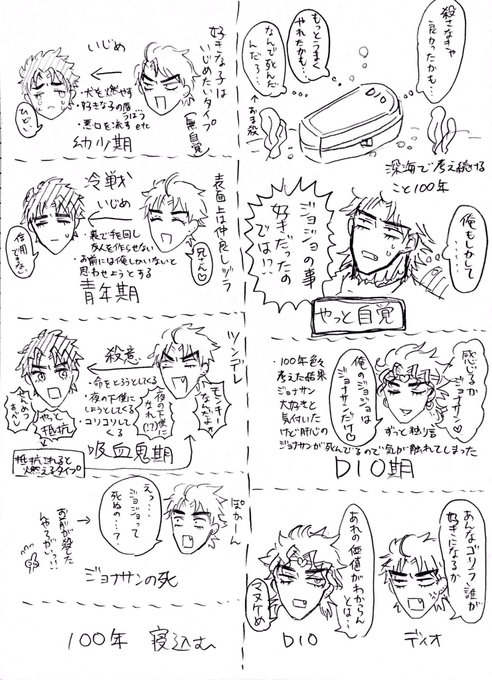 好きな子は
いじめたいタイプ
(無自覚)
いじめ
・犬を燃やす
・好きな子の唇うばう
・悪口を流す etc
ひどい
幼少期
表面上は仲良しヅラ
冷戦
いじめ
・裏で手を回し
友人を作らせない
・お前には俺しかいないと
思わせようとする
兄さん♡
信用できない
青年期
ツンデレ
殺意
・命をとろうとしてくる
・夜の下僕に
しようとしてくる
・ゴリゴリしてくる
モンキーなんだよ
夜の下僕になれ(!?)
やめないか
やっと抵抗
抵抗されると
燃えるタイプ
吸血鬼期
ぽかーん
えっ…
ジョジョって
死ぬの…?
お前が殺した
んやろがい…!
ジョナサンの死
100年 寝込む
殺さなきゃ
良かったかも…
もっとうまく
やれたかも…
なんで死んだ
んだろ…
↑おま殺
DIO
深海で考え続ける
こと100年
俺もしかして…
ジョジョの事
好きだったの
では!?
やっと自覚
感じるか
ジョナサン♡
俺のジョジョは
ジョナサンだけ♡
ずっと独り言
・100年色々
考えた結果
ジョナサン
大好きと
気付いた
けど肝心の
ジョナサンが死んでるので気が触れてしまった
DIO期
あんなゴリラ誰が
好きになるか
あれの価値がわからん
とは…
マヌケめ
DIO
ディオ